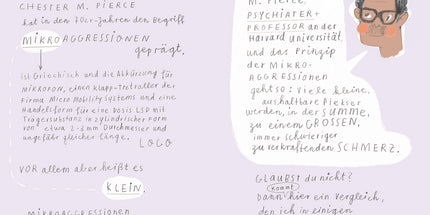 CHESTER M. PIERCE
hat in den 70er-Jahren den Begriff
MIKROAGGRESSIONEN
geprägt.
ist Griechisch und die Abkürzung für
MIKROFON, einen Klapp-Tretroller der
Firma Micro Mobility Systems und eine
Handelsform für eine Dosis LSD mit
Trägersubstanz in zylindrischer Form
von etwa 2-3 mm Durchmesser und
ungefähr gleicher Länge.
LOGO
VOR allem aber heißt es
KLEIN.
MIKROAGGRESSIONEN
M. PIERCE,
PSYCHIATER +
PROFESSOR an der
Harvard Universität
und das Prinzip
der MIKRO-
AGGRESSIONEN
geht so: Viele kleine,
aushaltbare Piekser
werden, in der SUMME,
zu einem GROSSEN,
immer schwieriger
zu verkraftenden SCHMERZ.
GLAUBST du nicht?
kommt
Dann hier ein Vergleich,
den ich in einigen